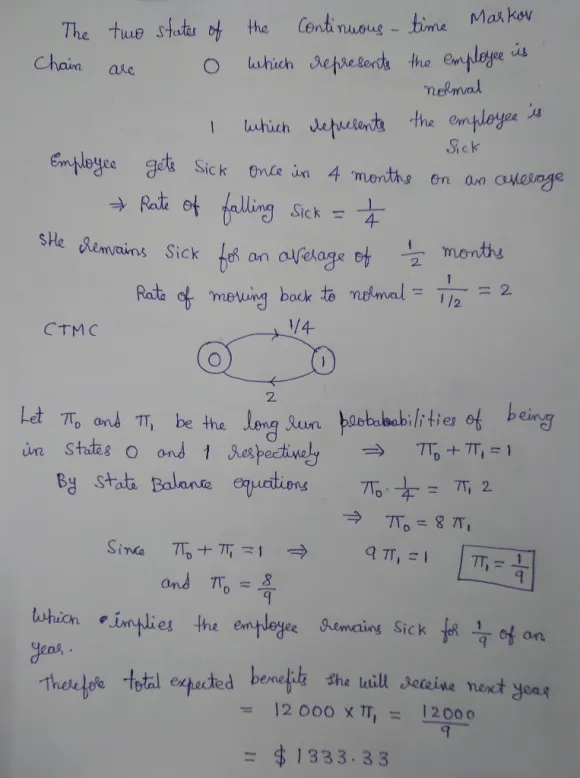 The two states of the Continuous-time Markov
Chain are 0 which represents the employee is
normal
1 which represents the employee is
Sick
Employee gets Sick once in 4 months on an average
⇒ Rate of falling Sick = 1/4
SHe remains Sick for an average of 1/2 months
Rate of moving back to normal = 1/(1/2) = 2
CTMC 0 1/4 1 2
Let π₀ and π₁ be the long run probabability of being
in States 0 and 1 respectively ⇒ π₀ + π₁ = 1
By State Balance equations π₀ · 1/4 = π₁ 2
⇒ π₀ = 8 π₁
Since π₀ + π₁ = 1 ⇒ 9 π₁ = 1 π₁ = 1/9
and π₀ = 8/9
Which implies the employee remains Sick for 1/9 of an
year.
Therefore total expected benefits she will receive next year
= 12000 × π₁ = 12000/9
= $1333.33